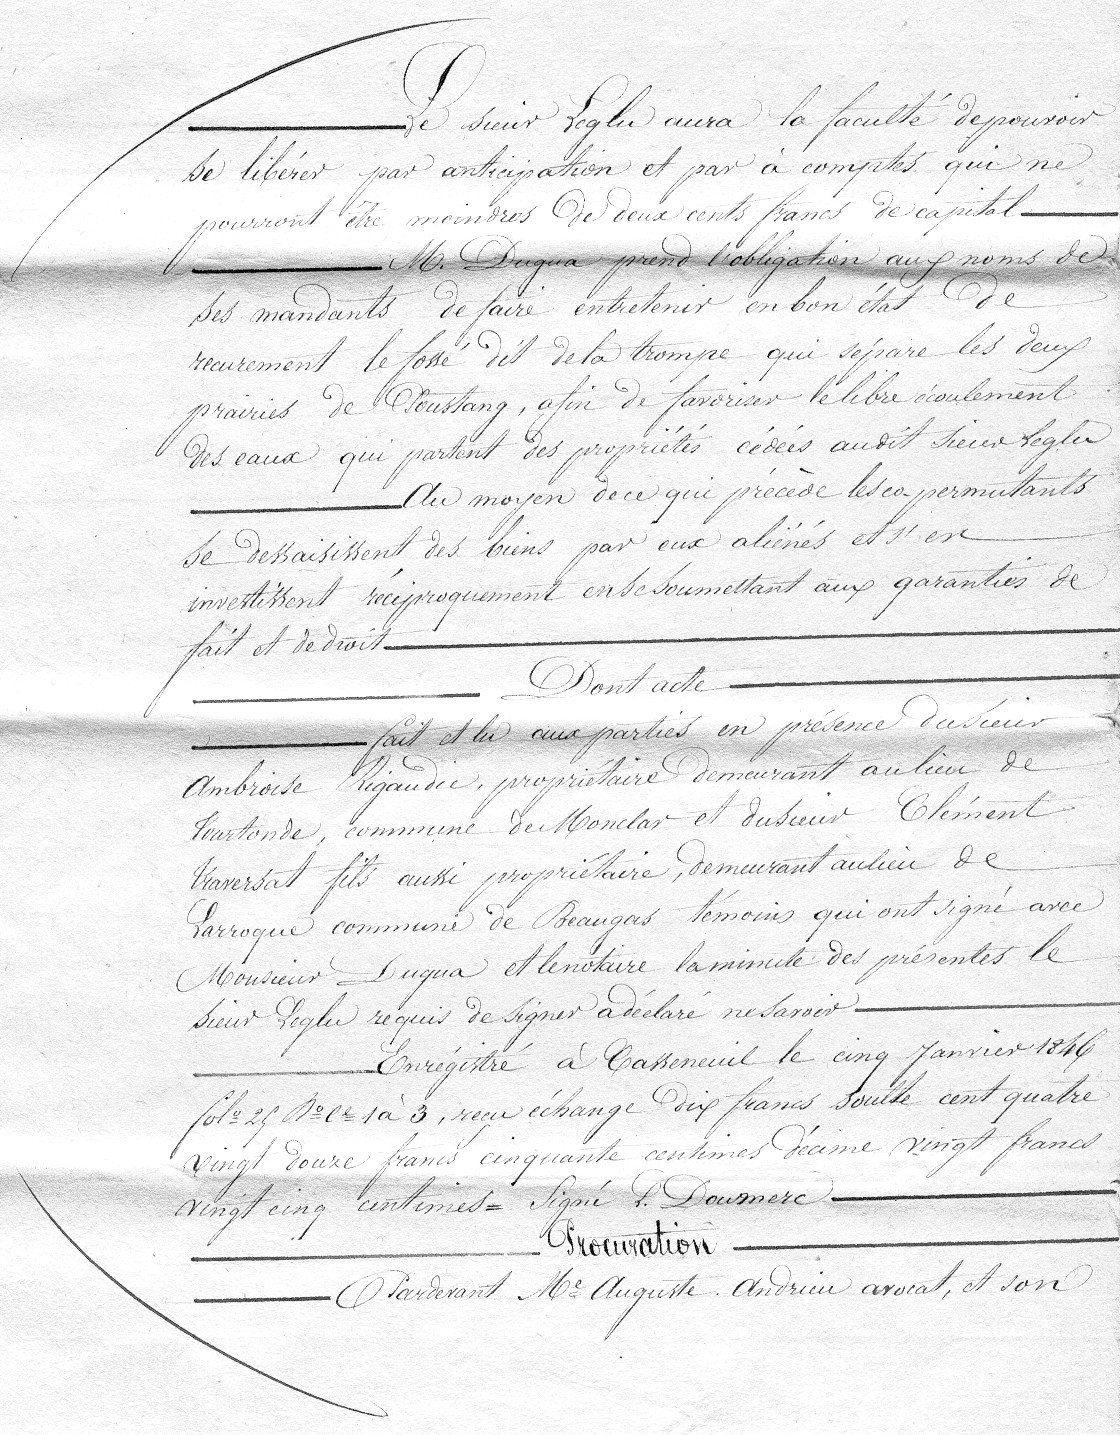 Le sieur Leglu aura la faculté de pouvoir
se libérer par anticipation et par à comptes qui ne
pourront être moindres de deux cents francs de capital
M. Dugua prend l'obligation aux noms de
ses mandants de faire entretenir en bon état de
recurement le fossé dit de la trompe qui sépare les deux
prairies de Poustang, afin de favoriser le libre écoulement
des eaux qui partent des propriétés cédées audit sieur Leglu
Au moyen de ce qui précède les co-permutants
se dessaisissent des biens par eux aliénés et s'en
investissent réciproquement en se soumettant aux garanties de
fait et de droit
Dont acte
fait et lu aux parties en présence du sieur
Ambroise Rigaudie, propriétaire demeurant au lieu de
tourtonde, commune de Monclar et du sieur Clément
traversat fils aussi propriétaire, demeurant au lieu de
Larroque commune de Beaugas témoins qui ont signé avec
Monsieur Dugua et le notaire la minute des présentes le
sieur Leglu requis de signer a déclaré ne savoir
Enrégistré à Casseneuil le cinq Janvier 1846
fol.o 25 R.o C.es 1 à 3, reçu échange dix francs soulte cent quatre
vingt douze francs cinquante centimes décime vingt francs
vingt cinq centimes = Signé L. Doumerc
Procuration
Pardevant M.e Auguste Andrieu avocat, et son